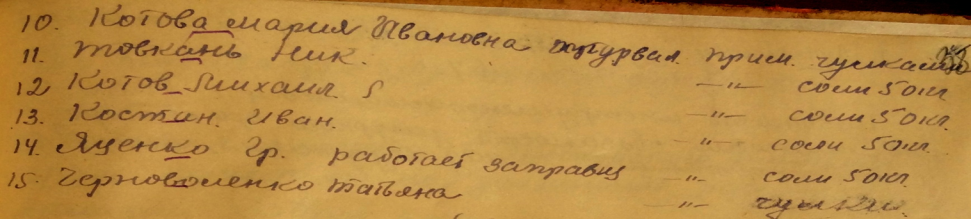 10. Котова Мария Ивановна
11. Товкань Ник. штурвал. прим. чушками
12 Котов Михаил. —"— соли 50кг
13. Костан. Иван. —"— соли 50кг.
14. Яценко Гр. работает заправщ —"— соли 50кг.
15. Черноволенко Татьяна —"— чушки.